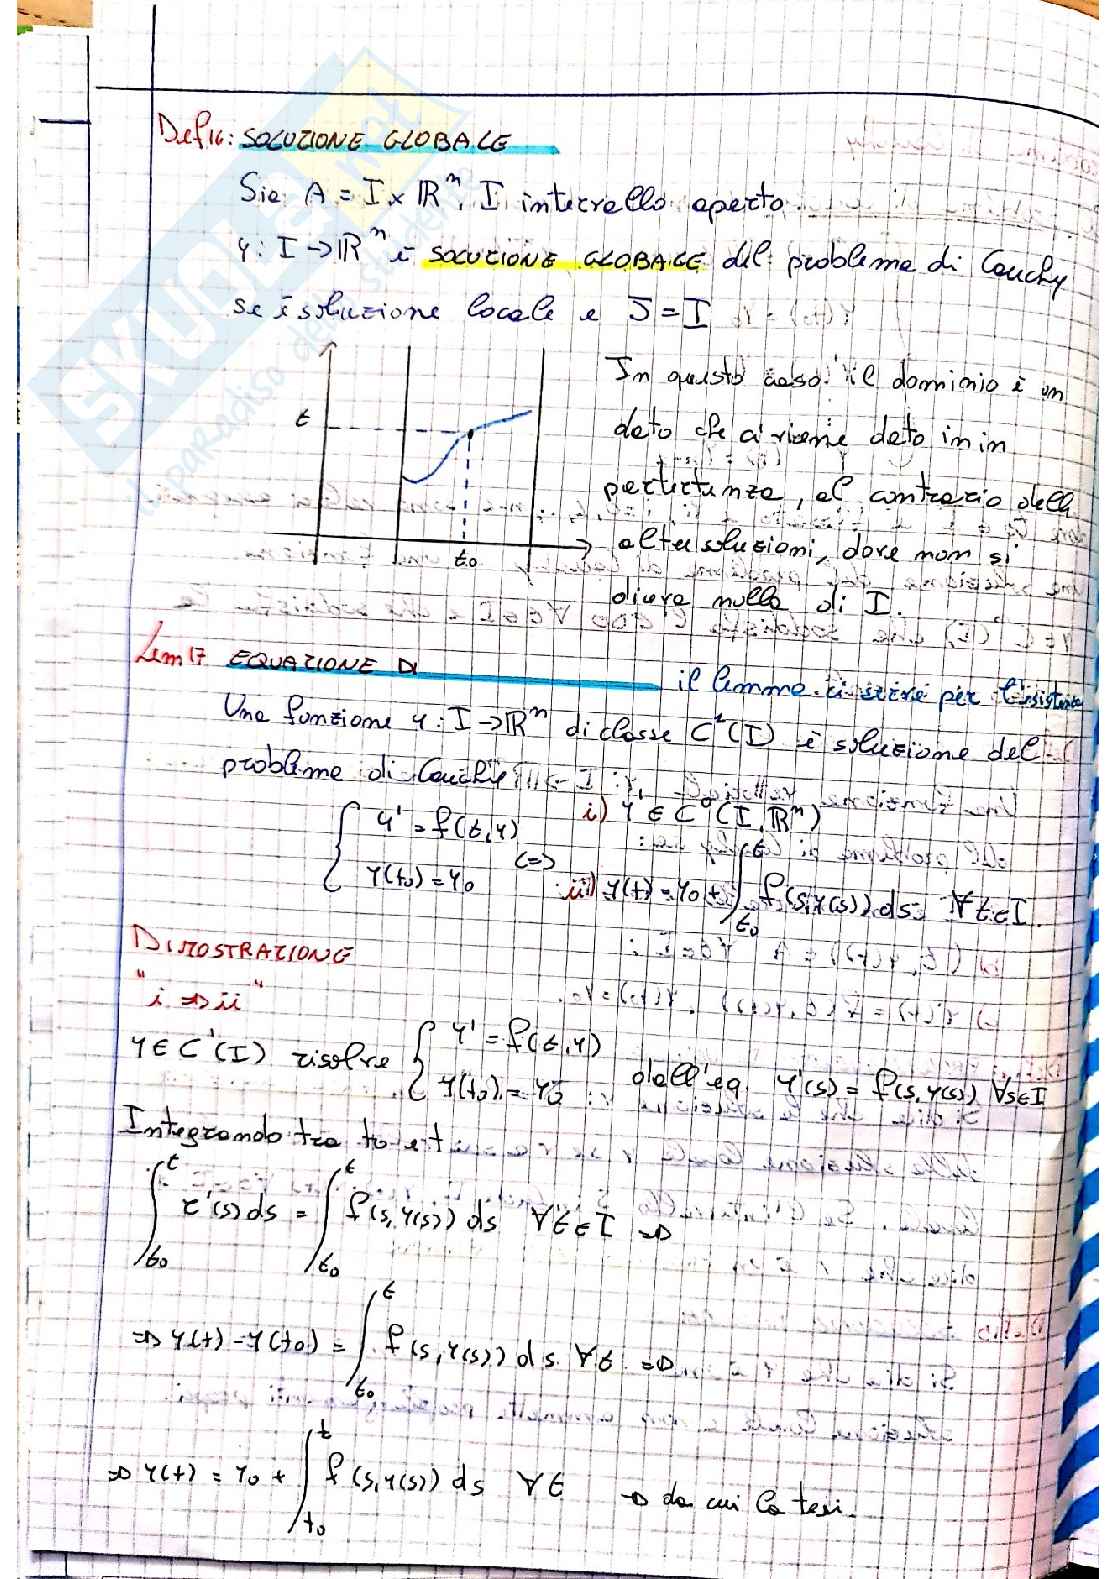 Def 16: SOLUZIONE GLOBALE
Sia A = I × ℝⁿ, I intervallo aperto
γ: I → ℝⁿ è SOLUZIONE GLOBALE del problema di Cauchy
se è soluzione locale e J = I
In questo caso il dominio è un
dato che ci viene dato in in
partenza, al contrario delle
altre soluzioni, dove non si
diceva nulla di I.
t
t₀
Lem 17 EQUAZIONE DI
il lemma ci serve per l'esistenza
Una funzione γ: I → ℝⁿ di classe C¹(I) è soluzione del
problema di Cauchy
{ γ' = f(t, γ)
γ(t₀) = γ₀
<=>
i) γ ∈ C⁰(I, ℝⁿ)
ii) γ(t) = γ₀ + ∫_{t₀}^{t} f(s, γ(s)) ds ∀ t ∈ I.
DIMOSTRAZIONE
"i => ii"
γ ∈ C¹(I) risolve { γ' = f(t, γ)
γ(t₀) = γ₀
dall'eq. γ'(s) = f(s, γ(s)) ∀ s ∈ I
Integrando tra t₀ e t
∫_{t₀}^{t} γ'(s) ds = ∫_{t₀}^{t} f(s, γ(s)) ds ∀ t ∈ I =>
=> γ(t) - γ(t₀) = ∫_{t₀}^{t} f(s, γ(s)) ds ∀ t =>
=> γ(t) = γ₀ + ∫_{t₀}^{t} f(s, γ(s)) ds ∀ t → da cui la tesi.
SKUOLA.net
il paradiso dello studente